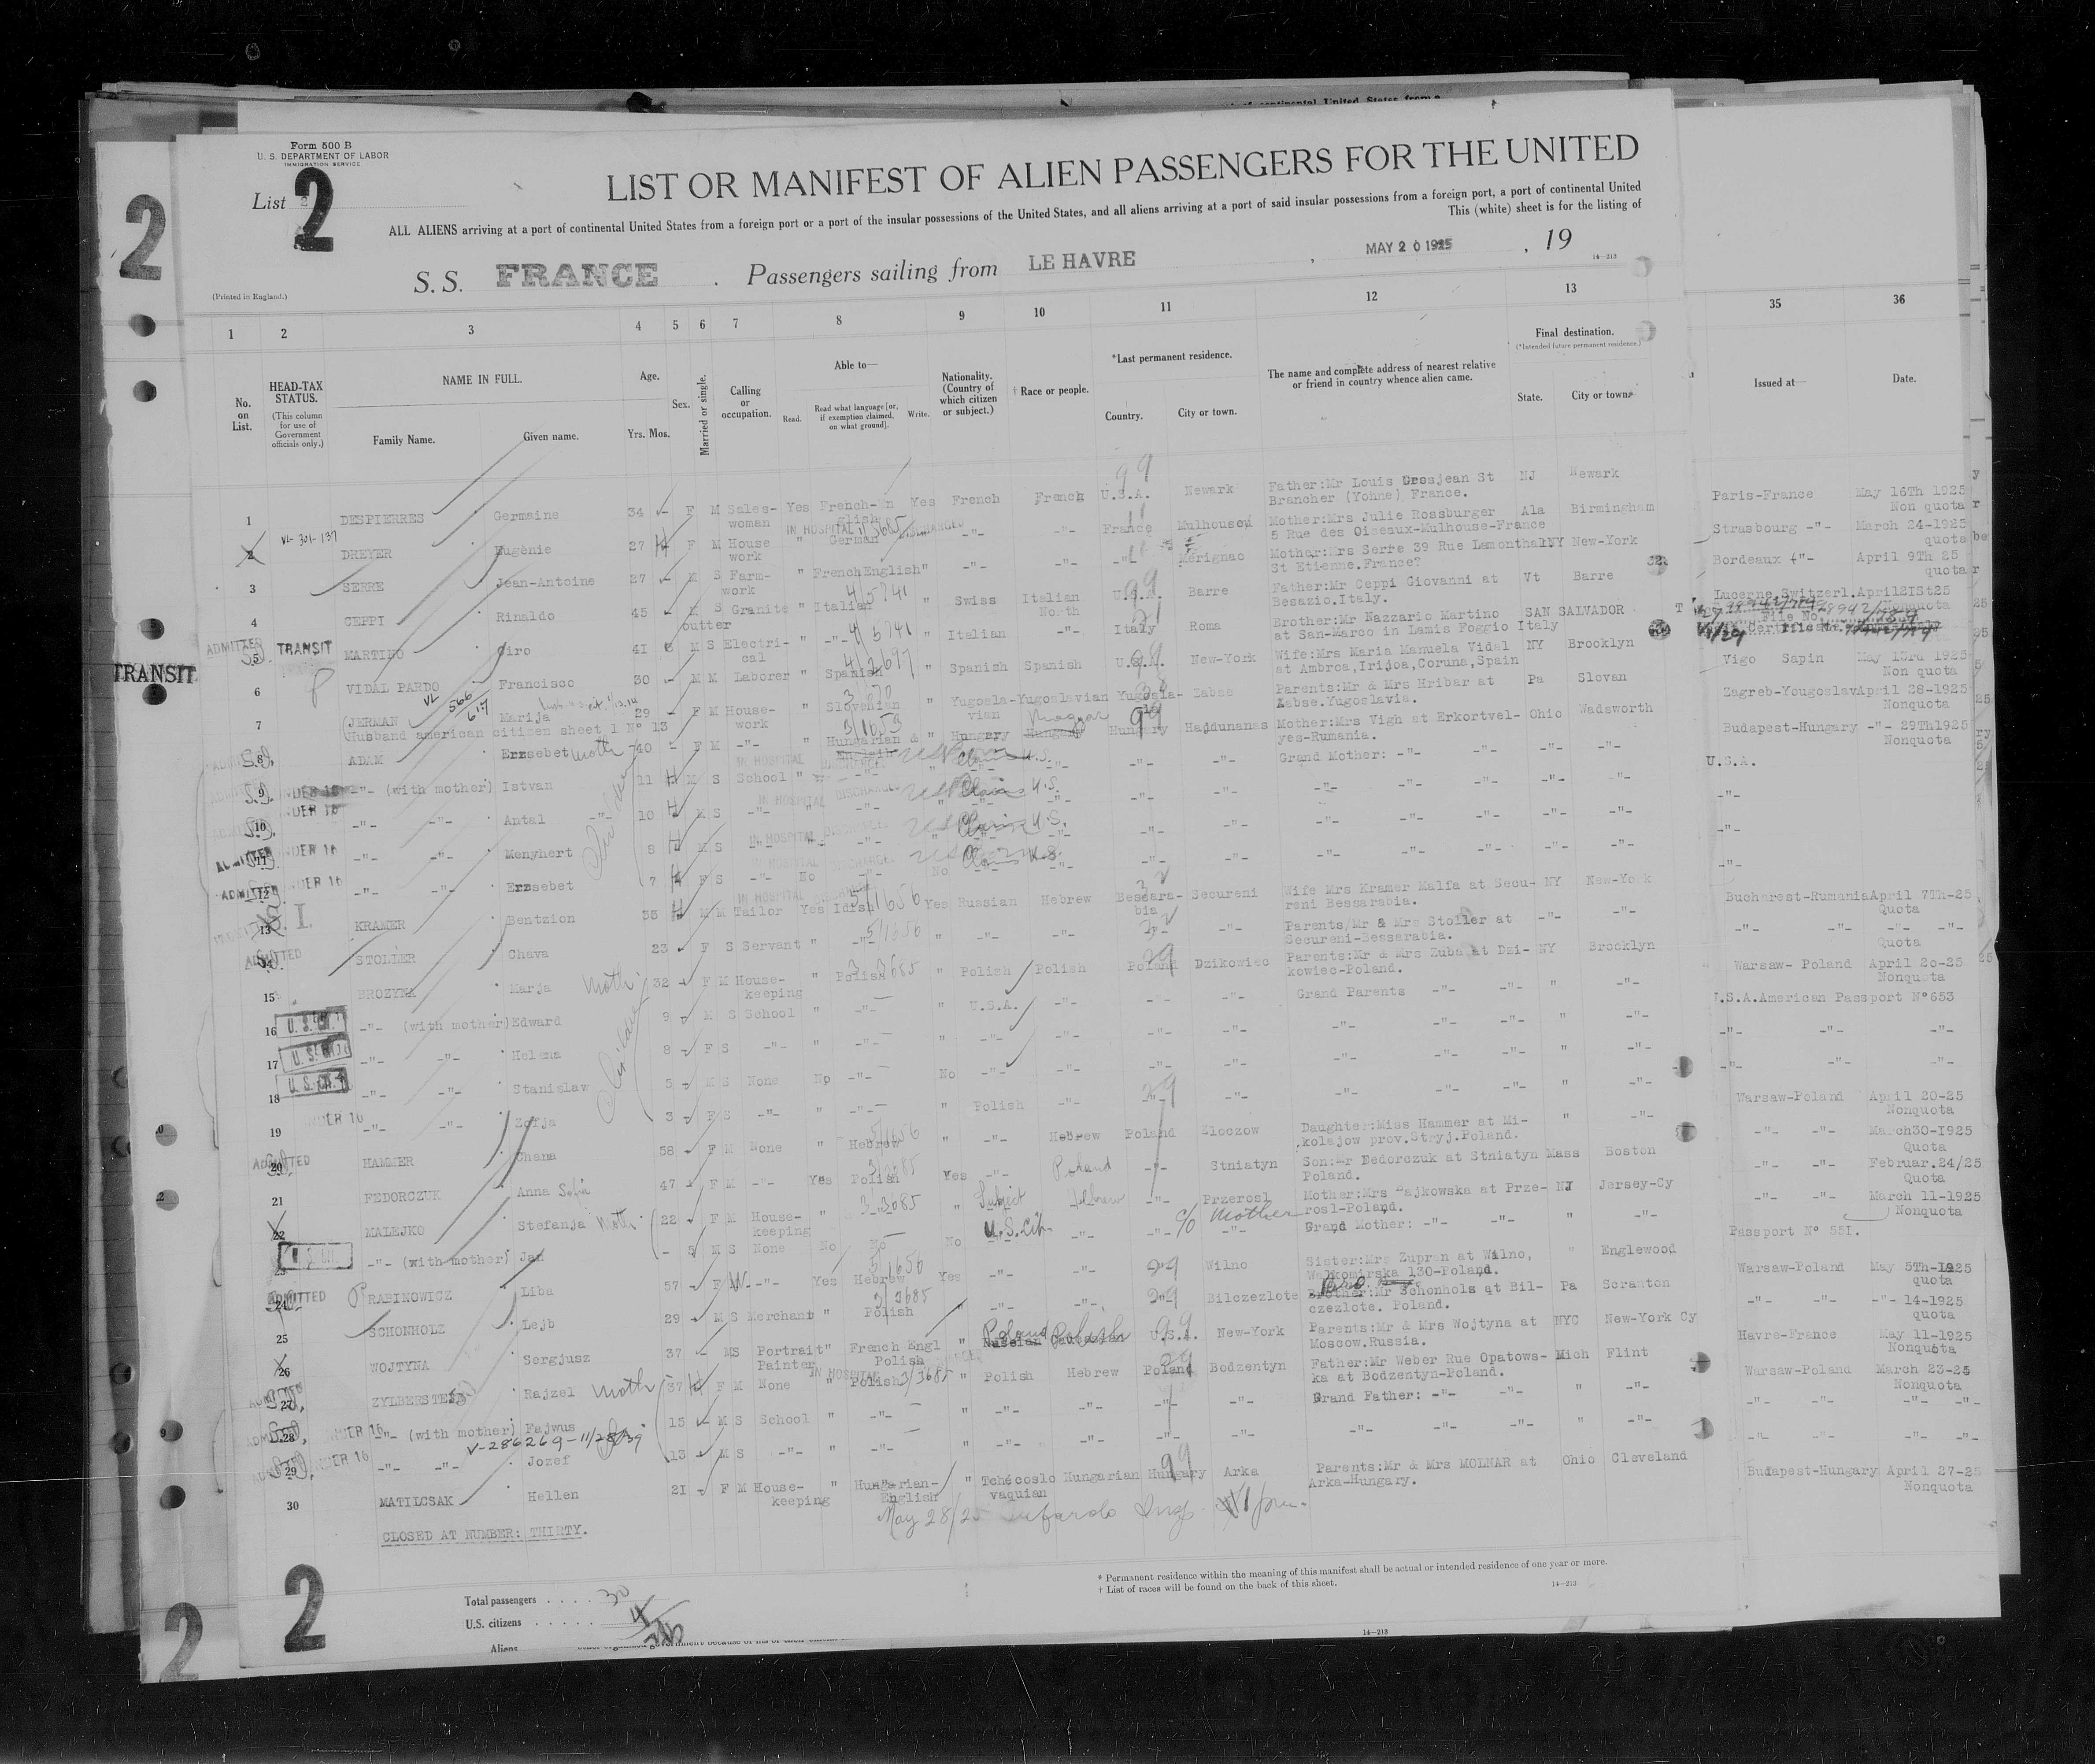 Form 500 B
U. S. DEPARTMENT OF LABOR
IMMIGRATION SERVICE
List 2
LIST OR MANIFEST OF ALIEN PASSENGERS FOR THE UNITED
ALL ALIENS arriving at a port of continental United States from a foreign port or a port of the insular possessions of the United States, and all aliens arriving at a port of said insular possessions from a foreign port, a port of continental United
This (white) sheet is for the listing of
S. S. FRANCE . Passengers sailing from LE HAVRE , MAY 20 1925 , 19
14-213
(Printed in England.)
1 2 3 4 5 6 7 8 9 10 11 12 13 35 36
No. on List.
HEAD-TAX STATUS.
(This column for use of Government officials only.)
NAME IN FULL.
Family Name. Given name.
Age.
Yrs. Mos.
Sex.
Married or single.
Calling or occupation.
Able to—
Read. Read what language [or, if exemption claimed, on what ground]. Write.
Nationality. (Country of which citizen or subject.)
† Race or people.
*Last permanent residence.
Country. City or town.
The name and complete address of nearest relative or friend in country whence alien came.
Final destination.
(*Intended future permanent residence.)
State. City or town.
Issued at— Date.
1 DESPIERRES Germaine 34 F M Sales-woman Yes French-English Yes French French U.S.A. Newark Father:Mr Louis Grosjean St Brancher (Yohne) France. NJ Newark Paris-France May 16Th 1925 Non quota
2 DREYER Eugènie 27 F M House work " German -"- -"- France Mulhouse Mother:Mrs Julie Rossburger 5 Rue des Oiseaux-Mulhouse-France Ala Birmingham Strasbourg -"- March 24-1925 quota
3 SERRE Jean-Antoine 27 M S Farm-work " French English " -"- -"- -"- Mérignac Mother:Mrs Serre 39 Rue Lemonthal St Etienne.France? NY New-York Bordeaux -"- April 9Th 25 quota
4 CEPPI Rinaldo 45 M S Granite cutter " Italian " Swiss Italian North U.S.A. Barre Father:Mr Ceppi Giovanni at Besazio.Italy. Vt Barre Lucerne.Switzerl. April 2ISt25 Nonquota
ADMITTED 5 TRANSIT MARTINO Ciro 41 M S Electri-cal " -"- " Italian -"- Italy Roma Brother:Mr Nazzario Martino at San-Marco in Lamis Foggio Italy SAN SALVADOR
TRANSIT
6 VIDAL PARDO Francisco 30 M M Laborer " Spanish " Spanish Spanish U.S.A. New-York Wife:Mrs Maria Manuela Vidal at Ambroa,Irijoa,Coruna,Spain NY Brooklyn Vigo Sapin May 13rd 1925 Non quota
7 (JERMAN Marija 29 F M House-work " Slovenian " Yugosla-vian Yugoslavian Yugosla-via Zabse Parents:Mr & Mrs Hribar at Zabse.Yugoslavia. Pa Slovan Zagreb-Yougoslavi April 28-1925 Nonquota
(Husband american citizen sheet 1 N° 13
8 ADAM Erzsebet Moth 40 F M -"- " Hungarian & " Hungary Magyar Hungary Haddunanas Mother:Mrs Vigh at Erkortvel-yes-Rumania. Ohio Wadsworth Budapest-Hungary -"- 29Th1925 Nonquota
9 UNDER 16 -"- (with mother) Istvan 11 M S School " -"- U.S. -"- -"- Grand Mother: -"- -"- -"- -"- U.S.A.
10 UNDER 16 -"- -"- Antal 10 M S -"- -"- U.S. -"- -"- -"- -"- -"- -"- -"-
11 UNDER 16 -"- -"- Menyhert 8 M S -"- -"- U.S. -"- -"- -"- -"- -"- -"- -"-
ADMITTED 12 UNDER 16 -"- -"- Erzsebet 7 F S -"- No -"- No U.S. -"- -"- -"- -"- -"- -"- -"-
13 KRAMER Bentzion 35 M M Tailor Yes Idish Yes Russian Hebrew Bessara-bia Secureni Wife Mrs Kramer Malfa at Secu-reni Bessarabia. NY New-York Bucharest-Rumania April 7Th-25 Quota
ADMITTED 14 STOLLER Chava 23 F S Servant " -"- " -"- -"- -"- -"- Parents/Mr & Mrs Stoller at Secureni-Bessarabia. -"- -"- -"- -"- -"- -"- Quota
15 BROZYNA Marja Moth 32 F M House-keeping " Polish " Polish Polish Poland Dzikowiec Parents:Mr & Mrs Zuba at Dzi-kowiec-Poland. NY Brooklyn Warsaw- Poland April 20-25 Nonquota
16 -"- (with mother) Edward 9 M S School " -"- " U.S.A. -"- -"- -"- Grand Parents -"- -"- " -"- U.S.A.American Passport N°653
17 -"- -"- Helena 8 F S -"- " -"- " -"- -"- -"- -"- -"- -"- -"- " -"- -"- -"- -"-
18 -"- -"- Stanislaw 5 M S None No -"- No -"- -"- -"- -"- -"- -"- -"- " -"- -"- -"- -"-
19 UNDER 16 -"- -"- Zofja 3 F S -"- " -"- " Polish -"- -"- -"- -"- -"- -"- " -"- Warsaw-Poland April 20-25 Nonquota
ADMITTED 20 HAMMER Chana 58 F M None " Hebrew " -"- Hebrew Poland Zloczow Daughter:Miss Hammer at Mi-kolajow prov.Stryj.Poland. " -"- -"- -"- March30-I925 Quota
21 FEDORCZUK Anna 47 F M -"- Yes Polish Yes -"- Poland -"- Stniatyn Son:Mr Fedorczuk at Stniatyn Poland. Mass Boston -"- -"- Februar.24/25 Quota
22 MALEJKO Stefanja Moth 22 F M House-keeping " -"- " Subject Hebrew -"- Przerosl Mother:Mrs Bajkowska at Prze-rosl-Poland. NJ Jersey-Cy -"- -"- March 11-1925 Nonquota
23 -"- (with mother) Jan 5 M S None No No No U.S. Cit. -"- -"- c/o Mother Grand Mother: -"- -"- " -"- Passport N° 55I.
ADMITTED 24 RABINOWICZ Liba 57 F W -"- Yes Hebrew Yes -"- -"- -"- Wilno Sister:Mrs Zupran at Wilno, Walkomirska 130-Poland. " Englewood Warsaw-Poland May 5Th-1925 quota
25 SCHONHOLZ Lejb 29 M S Merchant " Polish " -"- -"- -"- Bilczezlote Brother:Mr Schonholz at Bil-czezlote. Poland. Pa Scranton -"- -"- -"- 14-1925 quota
26 WOJTYNA Sergjusz 37 M S Portrait Painter " French Engl Polish " Poland Polish U.S.A. New-York Parents:Mr & Mrs Wojtyna at Moscow.Russia. NYC New-York Cy Havre-France May 11-1925 Nonquota
27 ZYLBERSTEJN Rajzel Moth 37 F M None " Polish " Polish Hebrew Poland Bodzentyn Father:Mr Weber Rue Opatows-ka at Bodzentyn-Poland. Mich Flint Warsaw-Poland March 23-25 Nonquota
28 UNDER 16 -"- (with mother) Fajwus 15 M S School " -"- " -"- -"- -"- -"- Grand Father: -"- -"- " -"- -"- -"- -"- -"-
V-286269-11/28/39
29 UNDER 16 -"- -"- Jozef 13 M S -"- " -"- " -"- -"- -"- -"- -"- -"- -"- " -"- -"- -"- -"- -"-
30 MATILCSAK Hellen 21 F M House-keeping " Hungarian-English " Tchécoslo vaquian Hungarian Hungary Arka Parents:Mr & Mrs MOLNAR at Arka-Hungary. Ohio Cleveland Budapest-Hungary April 27-25 Nonquota
May 28/25
CLOSED AT NUMBER: THIRTY.
* Permanent residence within the meaning of this manifest shall be actual or intended residence of one year or more.
† List of races will be found on the back of this sheet.
14-213
Total passengers . . . . 30
U.S. citizens . . . . . . 4
Aliens
2
2
14-213